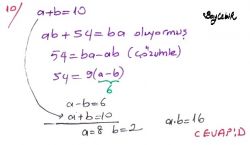 10/ a+b=10
ab+54=ba oluyormuş
54=ba-ab (çözümle)
54=9(a-b)
6
a-b=6
a+b=10
a=8 b=2
a.b=16
CEVAP:D